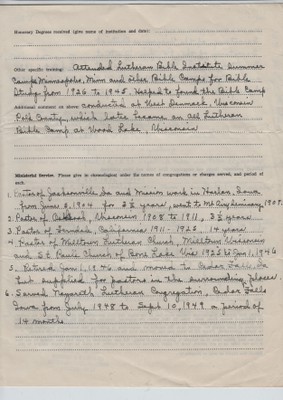 Honorary Degrees received (give name of institution and date):
Other specific training: Attended Lutheran Bible Institute Summer
Camps Minneapolis, Minn and other Bible Camps for Bible
Study from 1926 to 1945. Helped to found the Bible Camp
Additional comment on above: conducted at West Denmark, Wisconsin
Polk County, which later became an All Lutheran
Bible Camp at Wood Lake, Wisconsin
Ministerial Service. Please give in chronological order the names of congregations or charges served, and period of
each.
1. Pastor of Jacksonville, Ia and Mission work in Harlan, Iowa
from June 9, 1904 for 3½ years, went to Mt Airy Seminary, 1908.
2. Pastor of , Wisconsin 1908 to 1911, 3½ years
3. Pastor of Ferndale, California 1911 - 1925. 14 years
4. Pastor of Milltown Lutheran Church, Milltown Wisconsin
and St. Pauls Church of Bone Lake Wis 1925 to Jan 1, 1946
5. Retired Jan 1, 1946 and moved to Cedar Falls, Ia
but supplied for pastors in the surrounding places
6. Served Nazareth Lutheran Congregation, Cedar Falls
Iowa from July 1948 to Sept 10, 1949 a period of
14 months